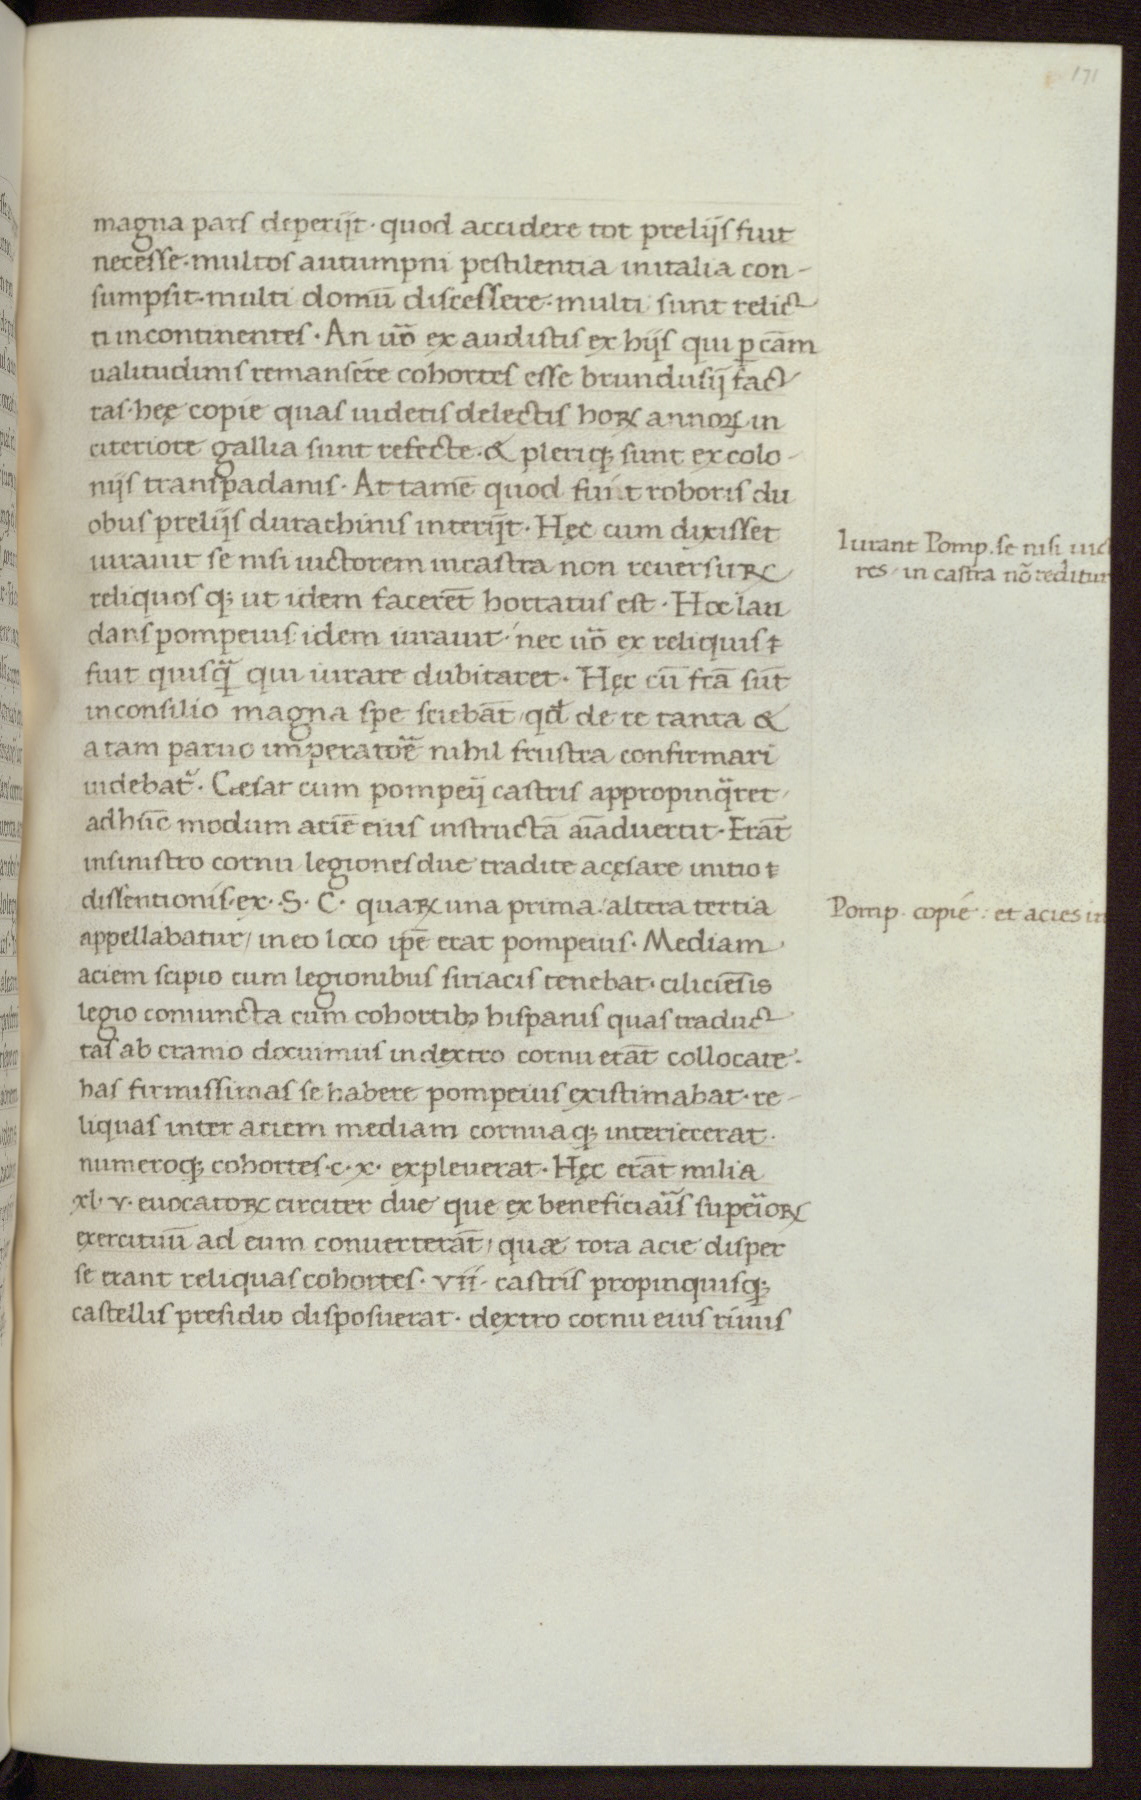 171
magna pars deperijt · quod accidere tot prelijs fuit
necesse · multos autumpni pestilentia initalia con-
sumpsit · multi domū discessere · multi sunt relic
ti incontinentes · An uō ex audistis ex hijs qui p cām
ualitudinis remansere cohortes esse brundusij fac
tas · hęe copie quas uidetis delectis hoꝝ annoꝝ in
citeriore gallia sunt refecte · & pleriqꝫ sunt ex colo-
nijs transpadanis · At tamē quod fuit roboris du
obus prelijs durachinis interijt · Hęc cum dixisset
iurauit se nisi uictorem incastra non reuersuꝝ
reliquos qꝫ ut idem facerēt hortatus est · Hoc lau
dans pompeius idem iurauit · nec uō ex reliquis
fuit quisqᷓ qui iurare dubitaret · Hęc cū fcā sūt
inconsilio magna spe sciebāt qđ de re tanta &
a tam paruo imperatore nihil frustra confirmari
uidebat᷑ · Cæsar cum pompeij castris appropinqᷓret
ad hūc modum aciē eius instructā aīaduertit · Erāt
insinistro cornu legiones due tradite acęsare initio
dissentionis · ex · S · C · quaꝝ una prima / altera tertia
appellabatur / in eo loco ipē erat pompeius · Mediam
aciem scipio cum legionibus siriacis tenebat · ciliciēsis
legio coniuncta cum cohortibꝫ hispanis quas traduc
tas ab cranio docuimus in dextro cornu erāt collocate ·
has firmissimas se habere pompeius existimabat · re-
liquas inter aciem mediam cornua qꝫ interiecerat ·
numeroqꝫ cohortes · c · x · expleuerat · Hęc erāt milia
xl · v · euocatoꝝ circiter due que ex beneficiaijs supeioꝝ
exercituū ad eum conuerterāt / quæ tota acie disper
se erant reliquas cohortes · vii · castris propinquisqꝫ
castellis presidio disposuerat · dextro cornu eius riuus
Iurant Pomp. se nisi uic
res / in castra nō reditur
Pomp · copie : et acies in